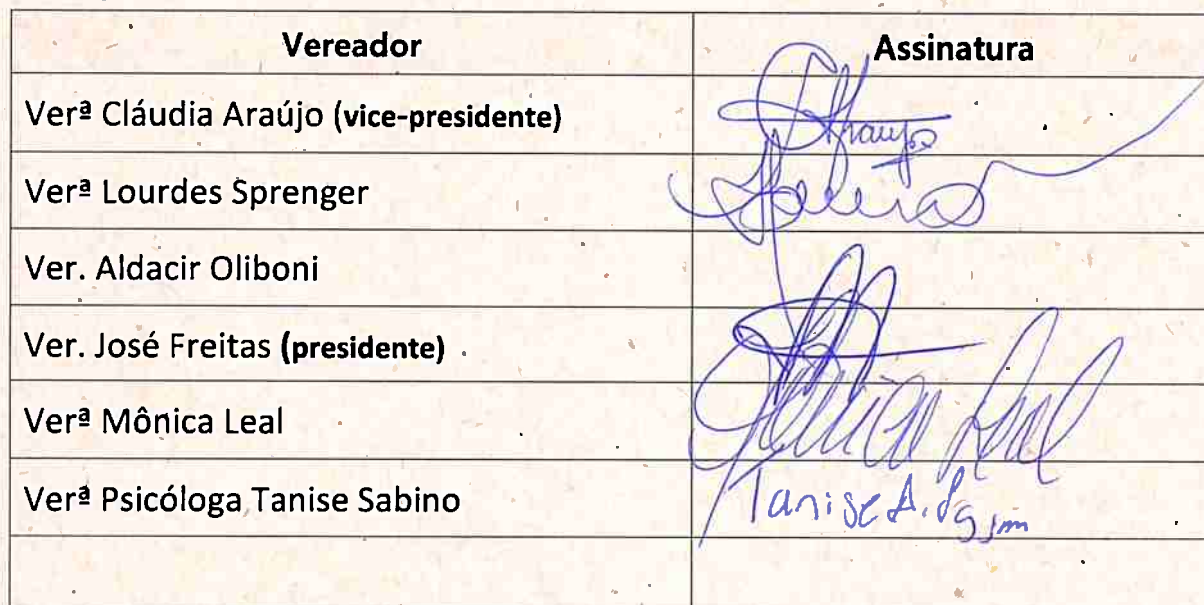 Vereador Assinatura
Verª Cláudia Araújo (vice-presidente) Araujo
Verª Lourdes Sprenger
Ver. Aldacir Oliboni
Ver. José Freitas (presidente)
Verª Mônica Leal Mônica Leal
Verª Psicóloga Tanise Sabino Tanise A.